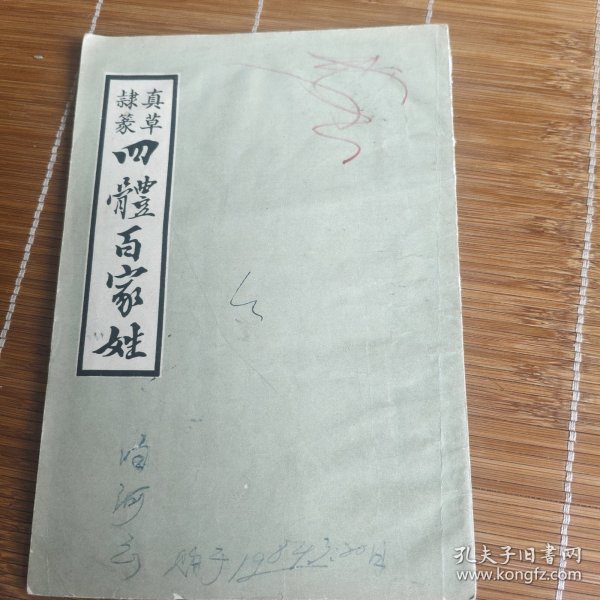 真草
隷篆
四體百家姓
购于1984.3.20日
孔夫子旧书网
www.kongfz.com